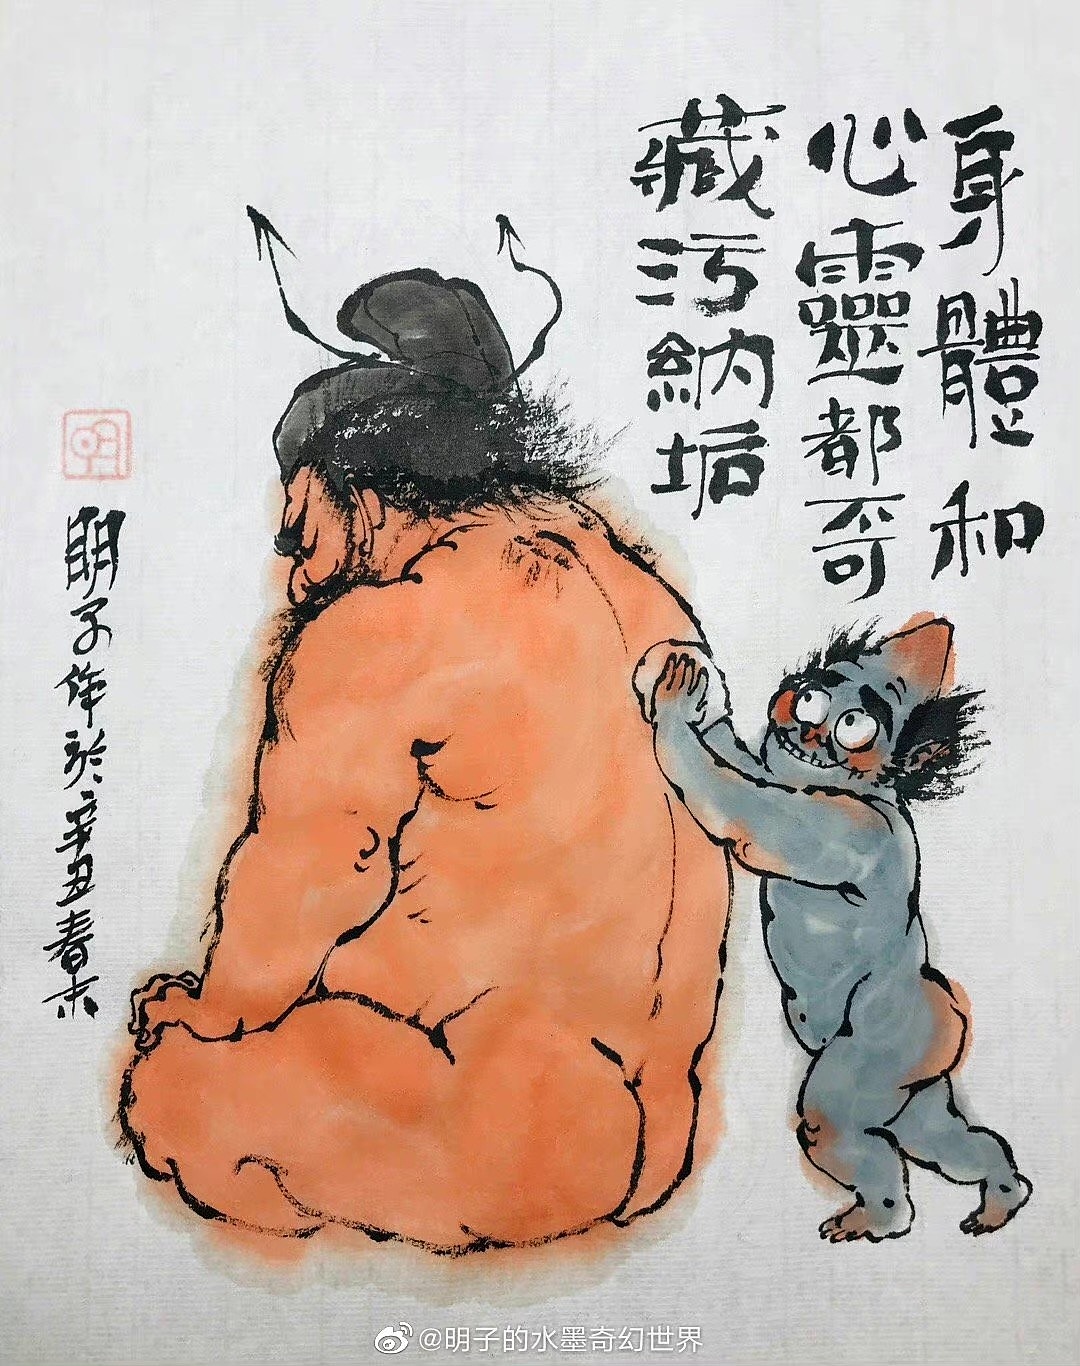 身體和
心靈都不可
藏污納垢
明子作於辛丑春末
@明子的水墨奇幻世界